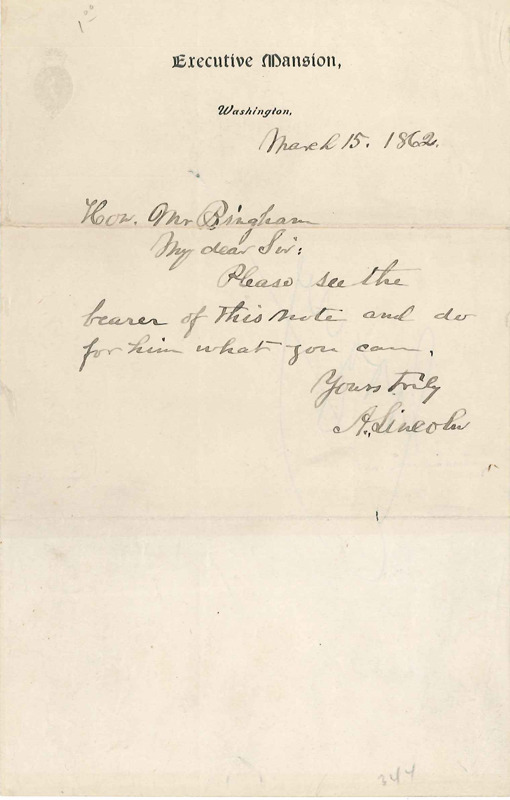 1⁰⁰
Executive Mansion,
Washington,
March 15. 1862.
Hon. Mr Bingham
My dear Sir:
Please see the
bearer of this note and do
for him what you can.
Yours truly
A. Lincoln
344